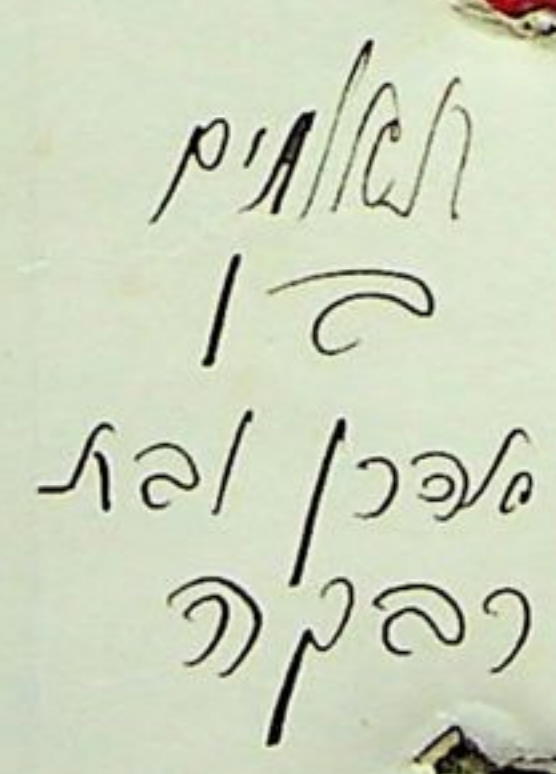 תאומים
בן
אהרן ובת
רבקה